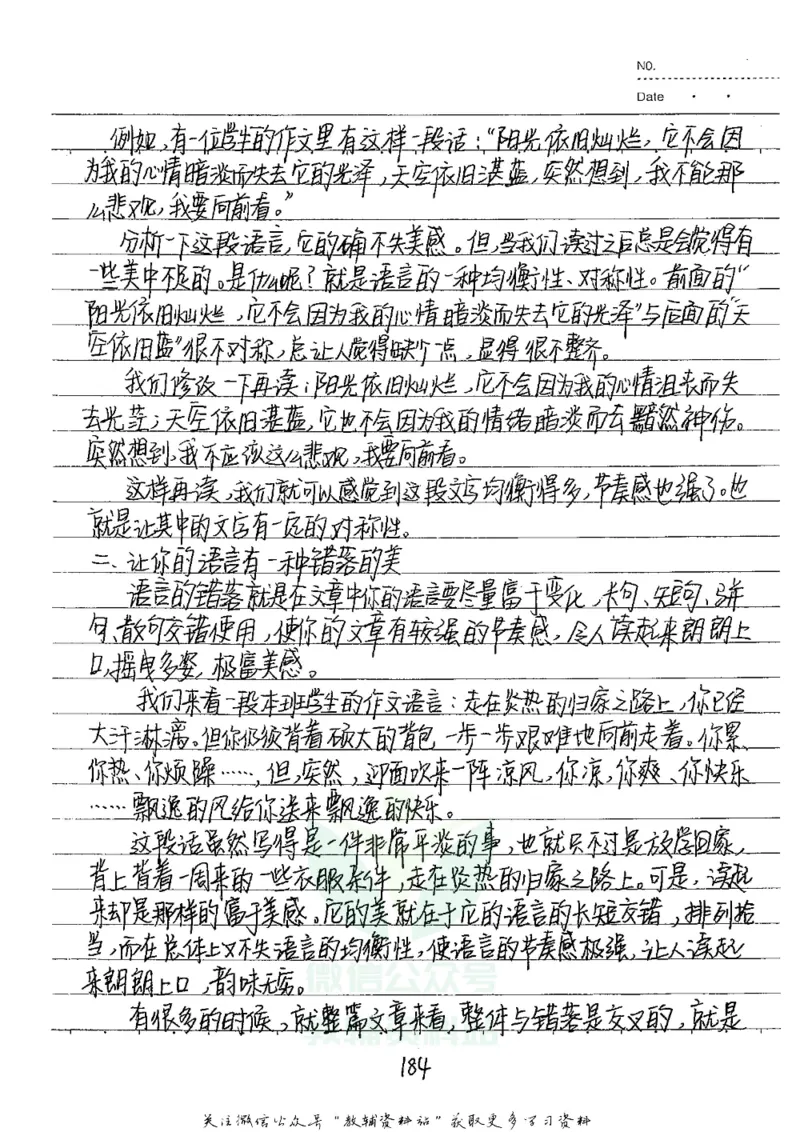 NO.
Date
例如,有一位学生的作文里有这样一段话:“阳光依旧灿烂,它不会因
为我的心情暗淡而失去它的光泽,天空依旧湛蓝,突然想到,我不能那
么悲观,我要向前看。”
分析一下这段语言,它的确不失美感。但,当我们读过之后总是会觉得有
一些美中不足的。是什么呢?就是语言的一种均衡性、对称性。前面的“
阳光依旧灿烂,它不会因为我的心情暗淡而失去它的光泽”与后面的“天
空依旧蓝”很不对称,总让人觉得缺个点,显得很不整齐。
我们修改一下再读:阳光依旧灿烂,它不会因为我的心情沮丧而失
去光茫;天空依旧湛蓝,它也不会因为我的情绪暗淡而去黯然神伤。
突然想到,我不应该这么悲观,我要向前看。
这样再读,我们就可以感觉到这段文字均衡得多,节奏感也强了。也
就是让其中的文字有一定的对称性。
二、让你的语言有一种错落的美
语言的错落就是在文章中你的语言要尽量富于变化,长句、短句、骈
句、散句交错使用,使你的文章有较强的节奏感,令人读起来朗朗上
口,摇曳多姿,极富美感。
我们来看一段本班学生的作文语言:走在炎热的归家之路上,你已经
大汗淋漓。但你仍须背着硕大的背包一步一步艰难地向前走着。你累、
你热、你烦躁……,但,突然,迎面吹来一阵凉风,你凉,你爽、你快乐
……飘逸的风给你送来飘逸的快乐。
这段话虽然写得是一件非常平淡的事,也就只不过是放学回家,
背上背着一周来的一些衣服条件,走在炎热的归家之路上。可是,读起
来却是那样的富于美感。它的美就在于它的语言的长短交错,排列恰
当,而在总体上又不失语言的均衡性,使语言的节奏感极强,让人读起
来朗朗上口,韵味无穷。
有很多的时候,就整篇文章来看,整体与错落是交叉的,就是
微信公众号
教辅资料站
184
关注微信公众号“教辅资料站”获取更多学习资料